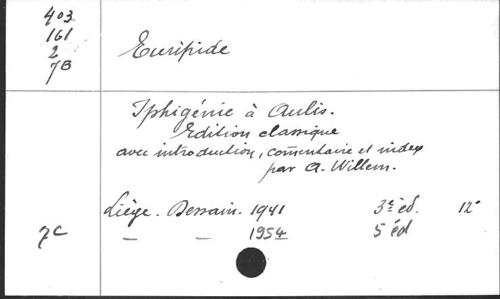 403
161
2
7B
Euripide
Iphigénie à Aulis.
Edition classique
avec introduction, commentaire et index
par A. Willem.
Liège. Dessain. 1941 3e éd. 12°
7C — — 1954 5 éd